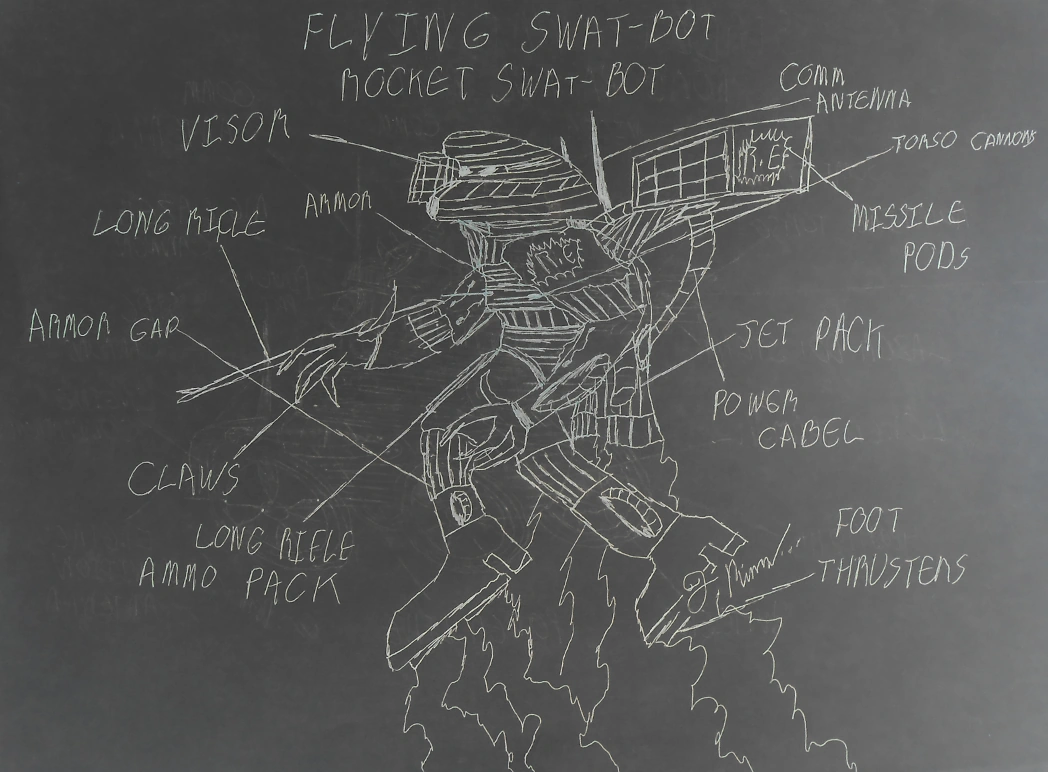 FLYING SWAT-BOT
ROCKET SWAT-BOT
COMM
ANTENNA
VISOR
TORSO CANNONS
ARMOR
LONG RIFLE
MISSILE
PODS
R.E.
R.E.
ARMOR GAP
JET PACK
POWER
CABEL
CLAWS
LONG RIFLE
AMMO PACK
FOOT
THRUSTERS